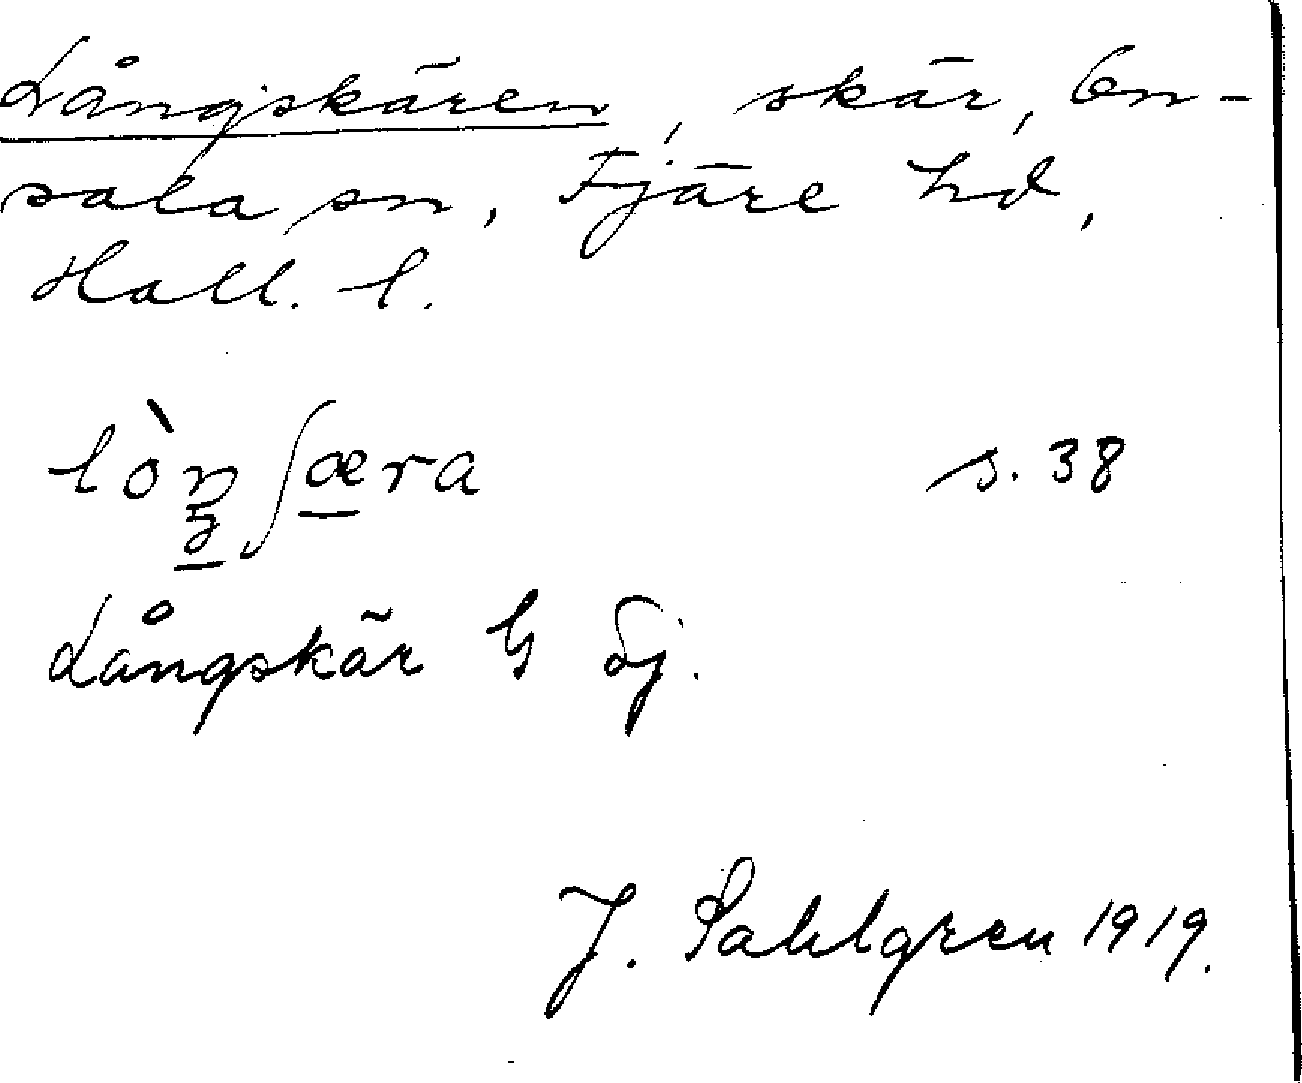 Långskären, skär, On-
sala sn, Fjäre hd,
Hall. l.
lòŋʃæra s. 38
Långskär G Sj.
J. Sahlgren 1919.